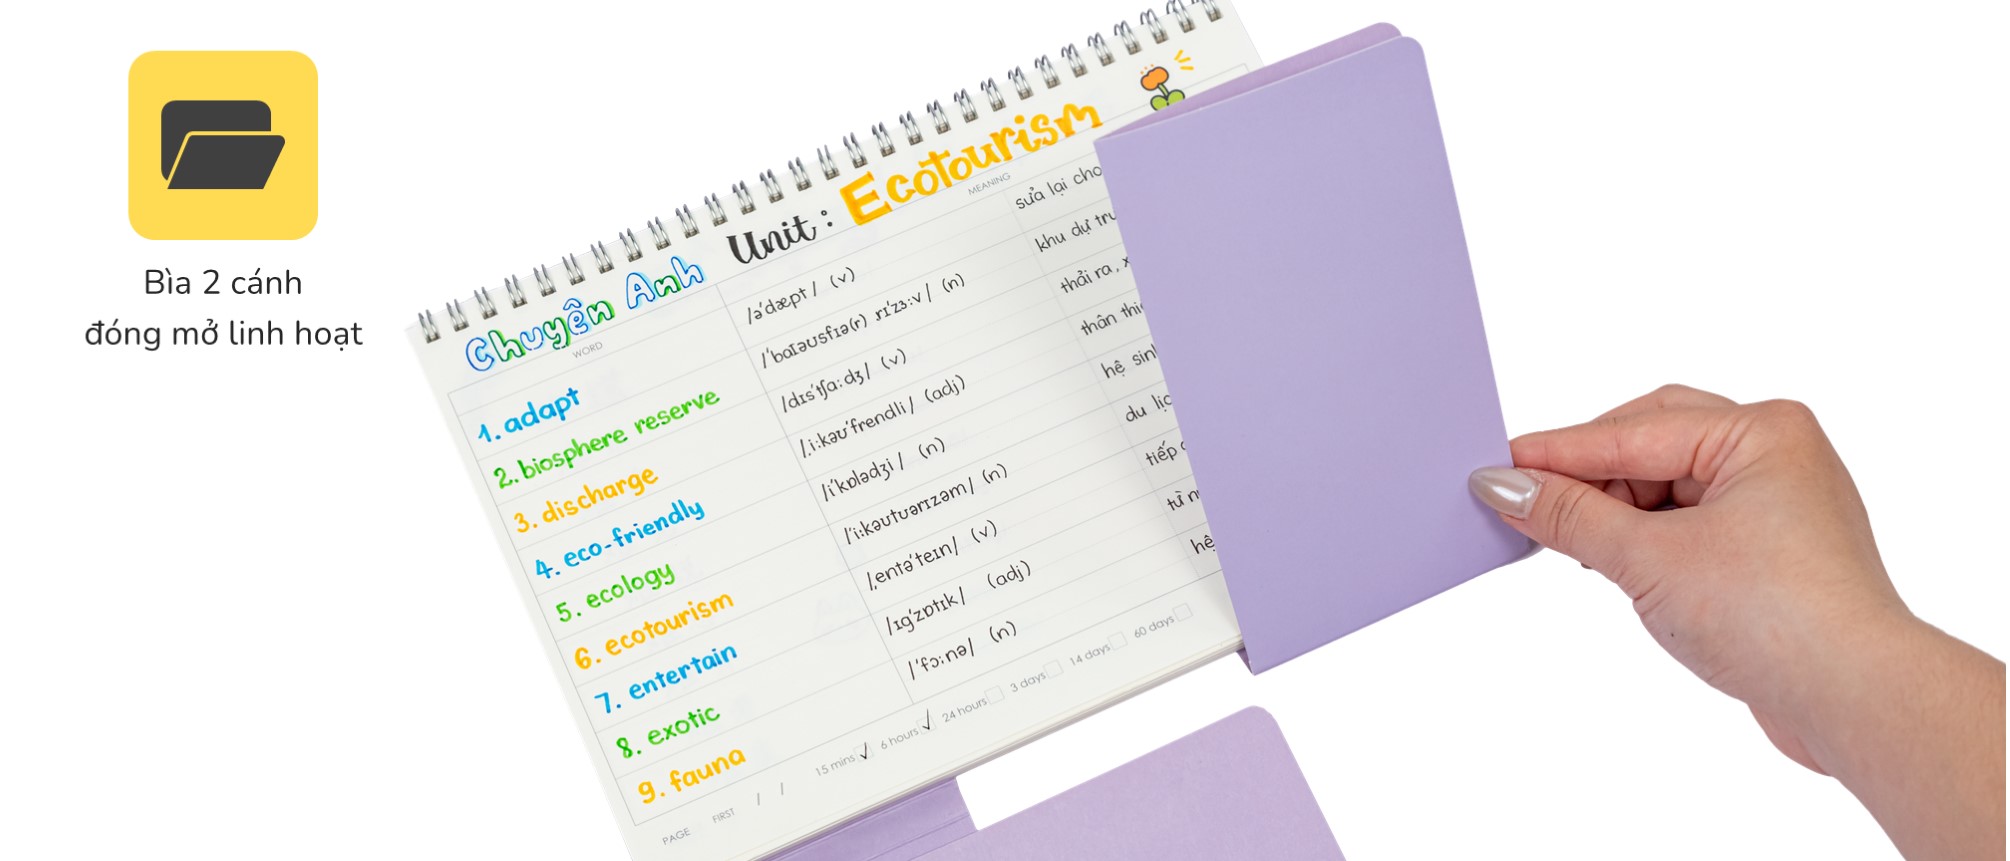 Bìa 2 cánh
đóng mở linh hoạt
Chuyên Anh Unit: Ecotourism
WORD
MEANING
1. adapt /ə'dæpt/ (v) sửa lại cho
2. biosphere reserve /'baɪəʊsfɪə(r) rɪ'zɜ:v/ (n) khu dự trữ
3. discharge /dɪs'tʃɑ:dʒ/ (v) thải ra,
4. eco-friendly /ˌi:kəʊ'frendli/ (adj) thân thi
5. ecology /i'kɒlədʒi/ (n) hệ sinh
6. ecotourism /'i:kəʊtʊərɪzəm/ (n) du lịc
7. entertain /ˌentə'teɪn/ (v) tiếp
8. exotic /ɪg'zɒtɪk/ (adj) từ
9. fauna /'fɔ:nə/ (n) hệ
PAGE FIRST / / 15 mins 6 hours 24 hours 3 days 14 days 60 days